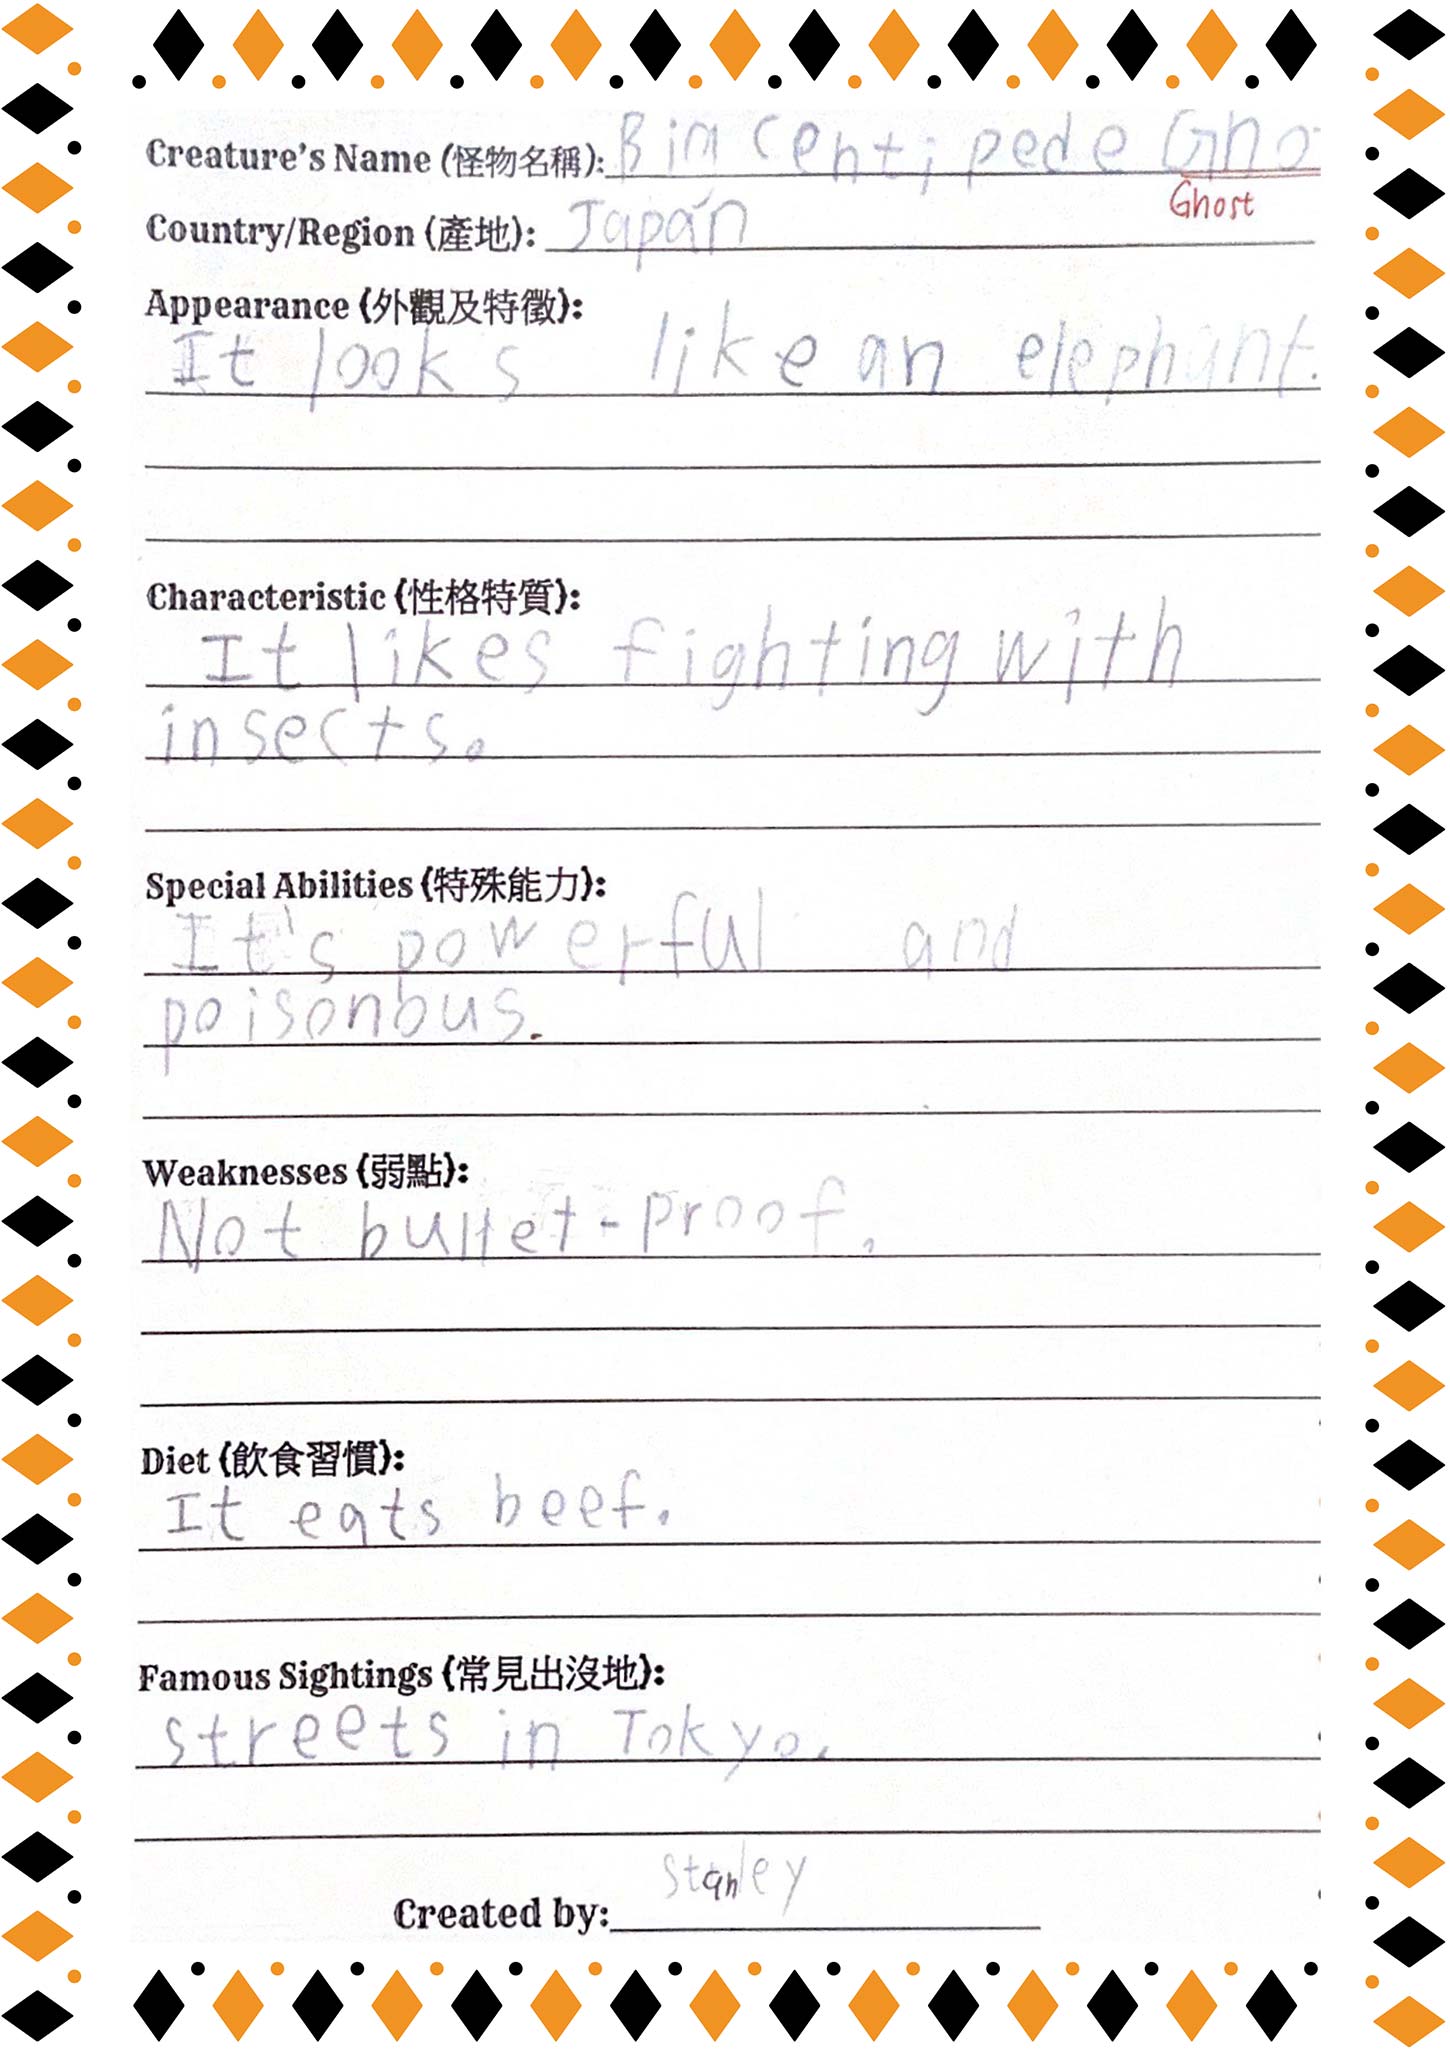 Creature's Name (怪物名稱): Bim Centipede Gho
Ghost
Country/Region (產地): Japan
Appearance (外觀及特徵):
It looks like an elephant.
Characteristic (性格特質):
It likes fighting with
insects.
Special Abilities (特殊能力):
It's powerful and
poisonous.
Weaknesses (弱點):
Not bullet-proof.
Diet (飲食習慣):
It eats beef.
Famous Sightings (常見出沒地):
streets in Tokyo.
Created by: Stanley